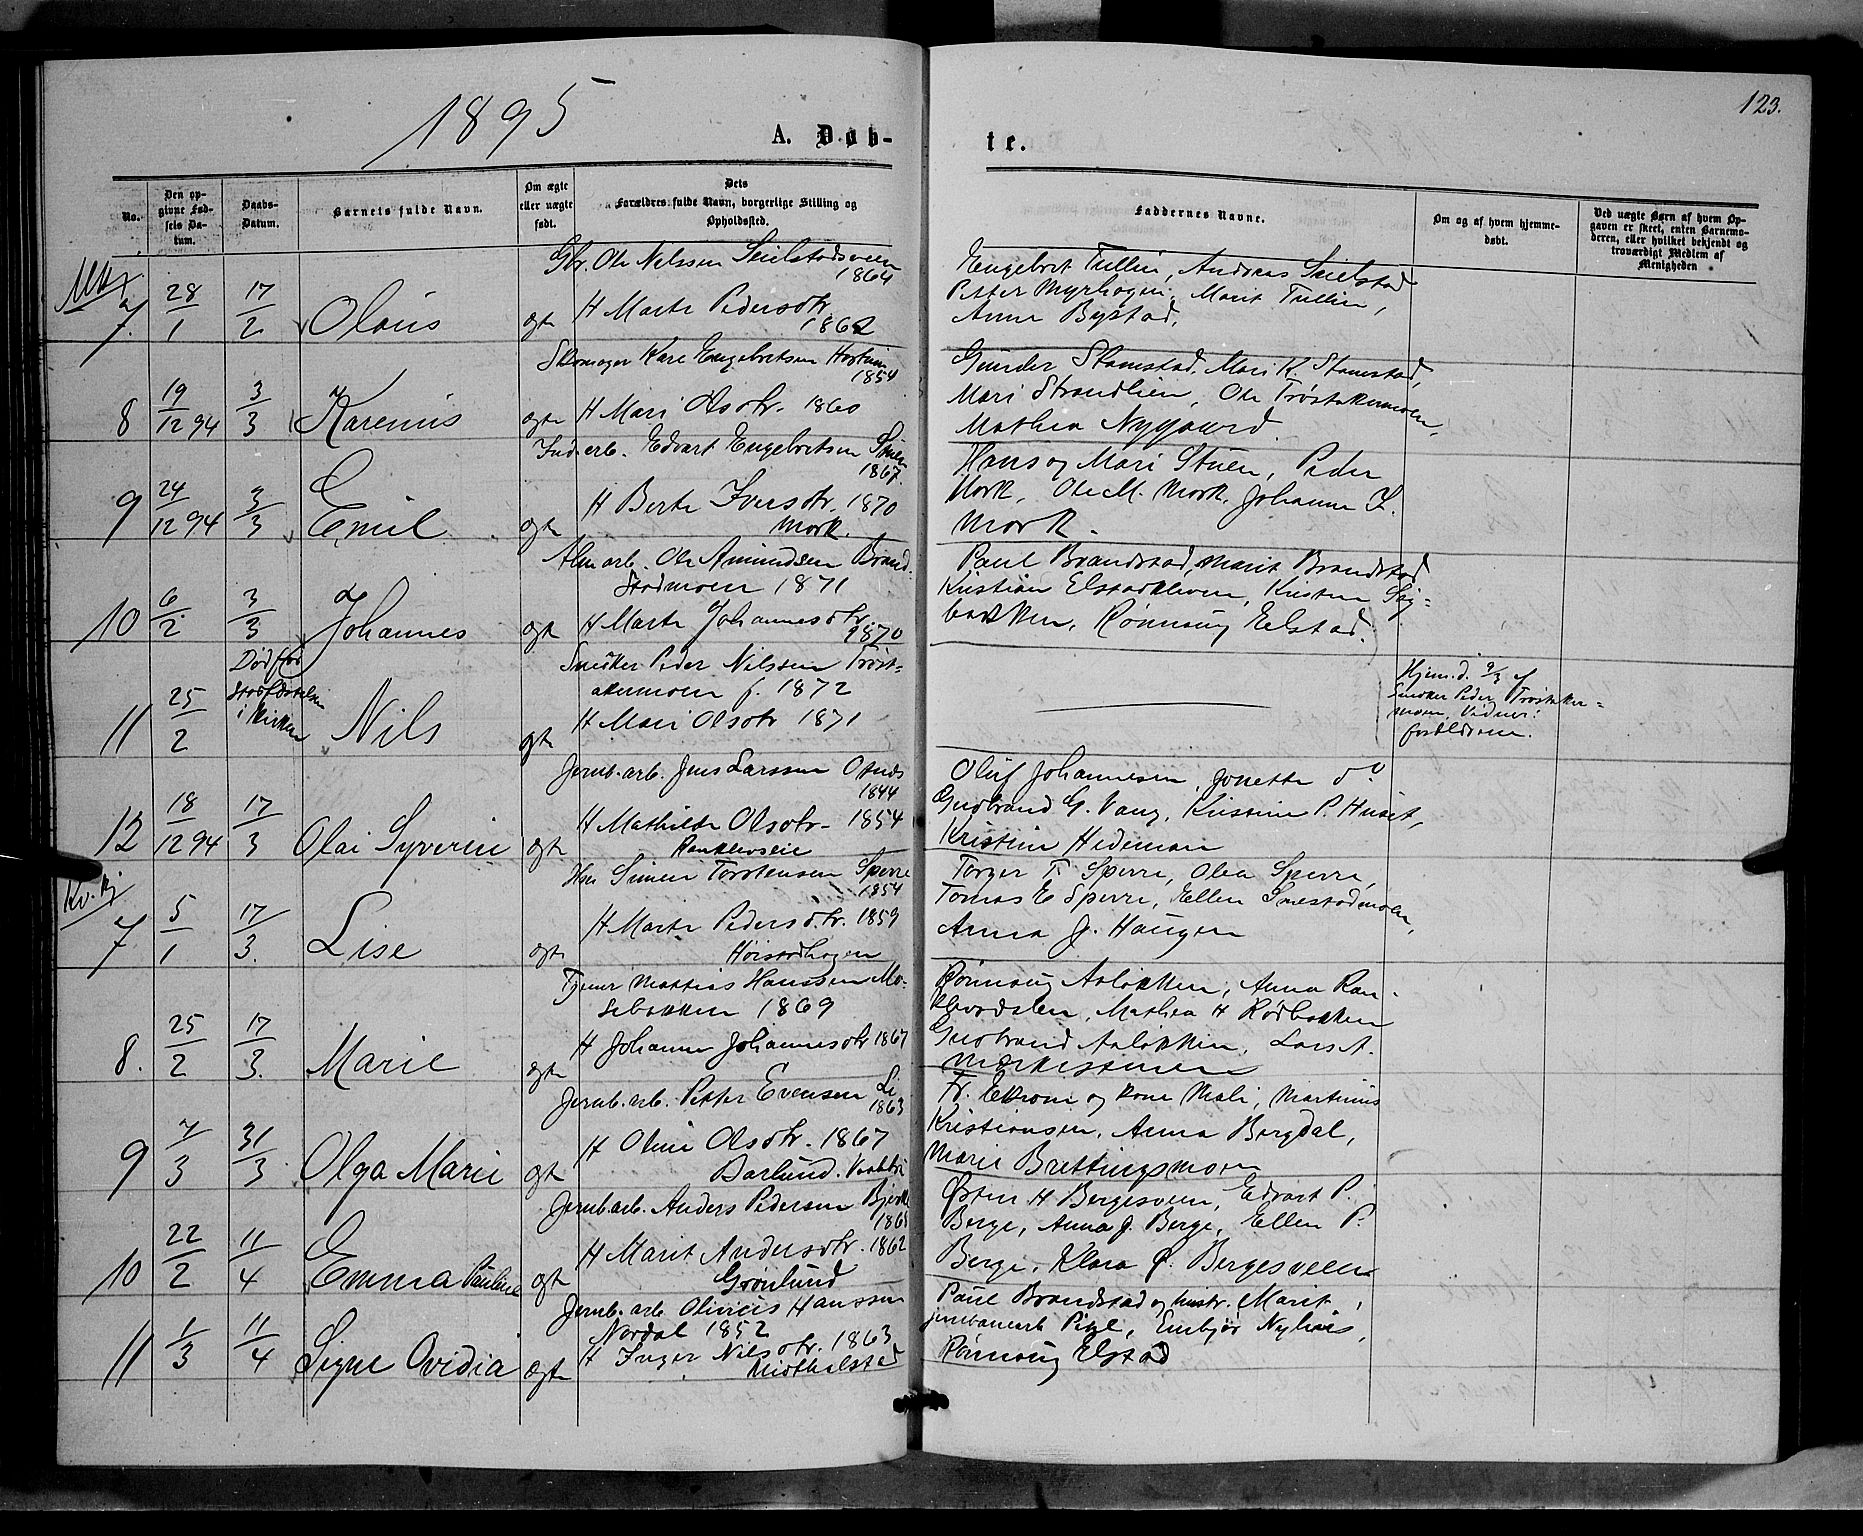 123.
1895
A. Døb-
te.
No.
Den op-
givne Fød-
sels Da-
tum.
Daabs-
Datum.
Barnets fulde Navn.
Om ægte
eller uægte
født.
Dets
Forældres fulde Navn, borgerlige Stilling og
Opholdssted.
Faddernes Navne.
Om og af hvem hjemme-
døbt.
Ved uægte Børn af hvem Op-
gaven er skeet, enten Barnemo-
deren, eller hvilket bekjendt og
troværdigt Medlem af
Menigheden
7. 28/1 17/2 Olaus ægte
Gbr. Ole Nilssen Seielstadsveen
1864
H Marte Pedersdtr.
1862
Engebret Tullin, Andreas Seielstad
Petter Myrhagen, Marit Tullin,
Anne Bystad,
8 19/12 94 3/3 Karenius ægte
Skomager Kare Engebretsen
1854
H Mari Olsdtr. 1860
Gunder Stamstad, Mari K. Stamstad,
Mari Strandlien, Ole Trøstakermoen,
Mathea Nygaard.
9 24/12 94 3/3 Emil ægte
Ind.erb. Edvart Engebretsen
1867
H Berte Iversdtr. 1870
Mork.
Hans og Mari Stuen, Peder
Mork, Ole M. Mork, Johanne I.
Mork.
10 6/2 3/3 Johannes ægte
Ole Amundsen Brand-
stadmoen 1871
H Marte Johannesdtr.
1870
Paul Brandstad, Marit Brandstad
Kristian Elstadkleven, Kristen Sky-
bakken, Rønnaug Elstad.
11 25/2 Død før
Stadfæstelsen
i Kirken
Nils ægte
Snedker Peder Nilssen Trøst-
akermoen f. 1872
H Mari Olsdtr 1871
Hjem.d. 2/3 af
Snedker Peder Trøstaker-
moen Vidner:
forældrene.
12 18/12 94 17/3 Olai Syverin ægte
Jernb.arb. Jens Larssen
1844
H Mathilde Olsdtr. 1854
Ranklevseie
Oluf Johannesen, Jonette do
Gudbrand G. Vang, Kristine P. Huset,
Kristine Hedeman
Kv.kj
7 5/1 17/3. Lise ægte
Simen Torstensen Sperre
1854
H Marte Pedersdtr. 1859
Høistadhagen
Torger T. Sperre, Olea Sperre,
Tomas E Sperre, Ellen
Anna J. Haugen
8. 25/2 17/3. Marie ægte
Tjener Mattias Hanssen Mo-
sebakken 1869
H Johanne Johannesdtr 1867
Rønnaug Aaløkken, Anna Ran-
klevdalen, Mathea H Rødbakken
Gudbrand Aaløkken, Lars A.
9 7/3 31/3 Olga Marie ægte
Jernb.arb. Petter Evensen Li
1863
H Oline Olsdtr. 1867
Fr. Ekrom og kone Mali, Martinus
Kristiansen, Anna Bergdal,
Marie Brettingsmoen
10 22/2 11/4 Emma Pauline ægte
Jernb.arb. Anders Pedersen
H Marit Andersdtr. 1862
Grønlund
Østen H Bergesveen, Edvart P.
Berge, Anna J. Berge, Ellen P.
Berge, Klara Ø. Bergesveen
11 1/3 11/4 Signe Ovidia ægte
Jernb.arb Olivius Hanssen
Nordal 1852
H Inger Nilsdtr. 1863
Midthelstad
Paul Brandstad og hustr. Marit,
Embjør Nyhus,
Rønnaug Elstad